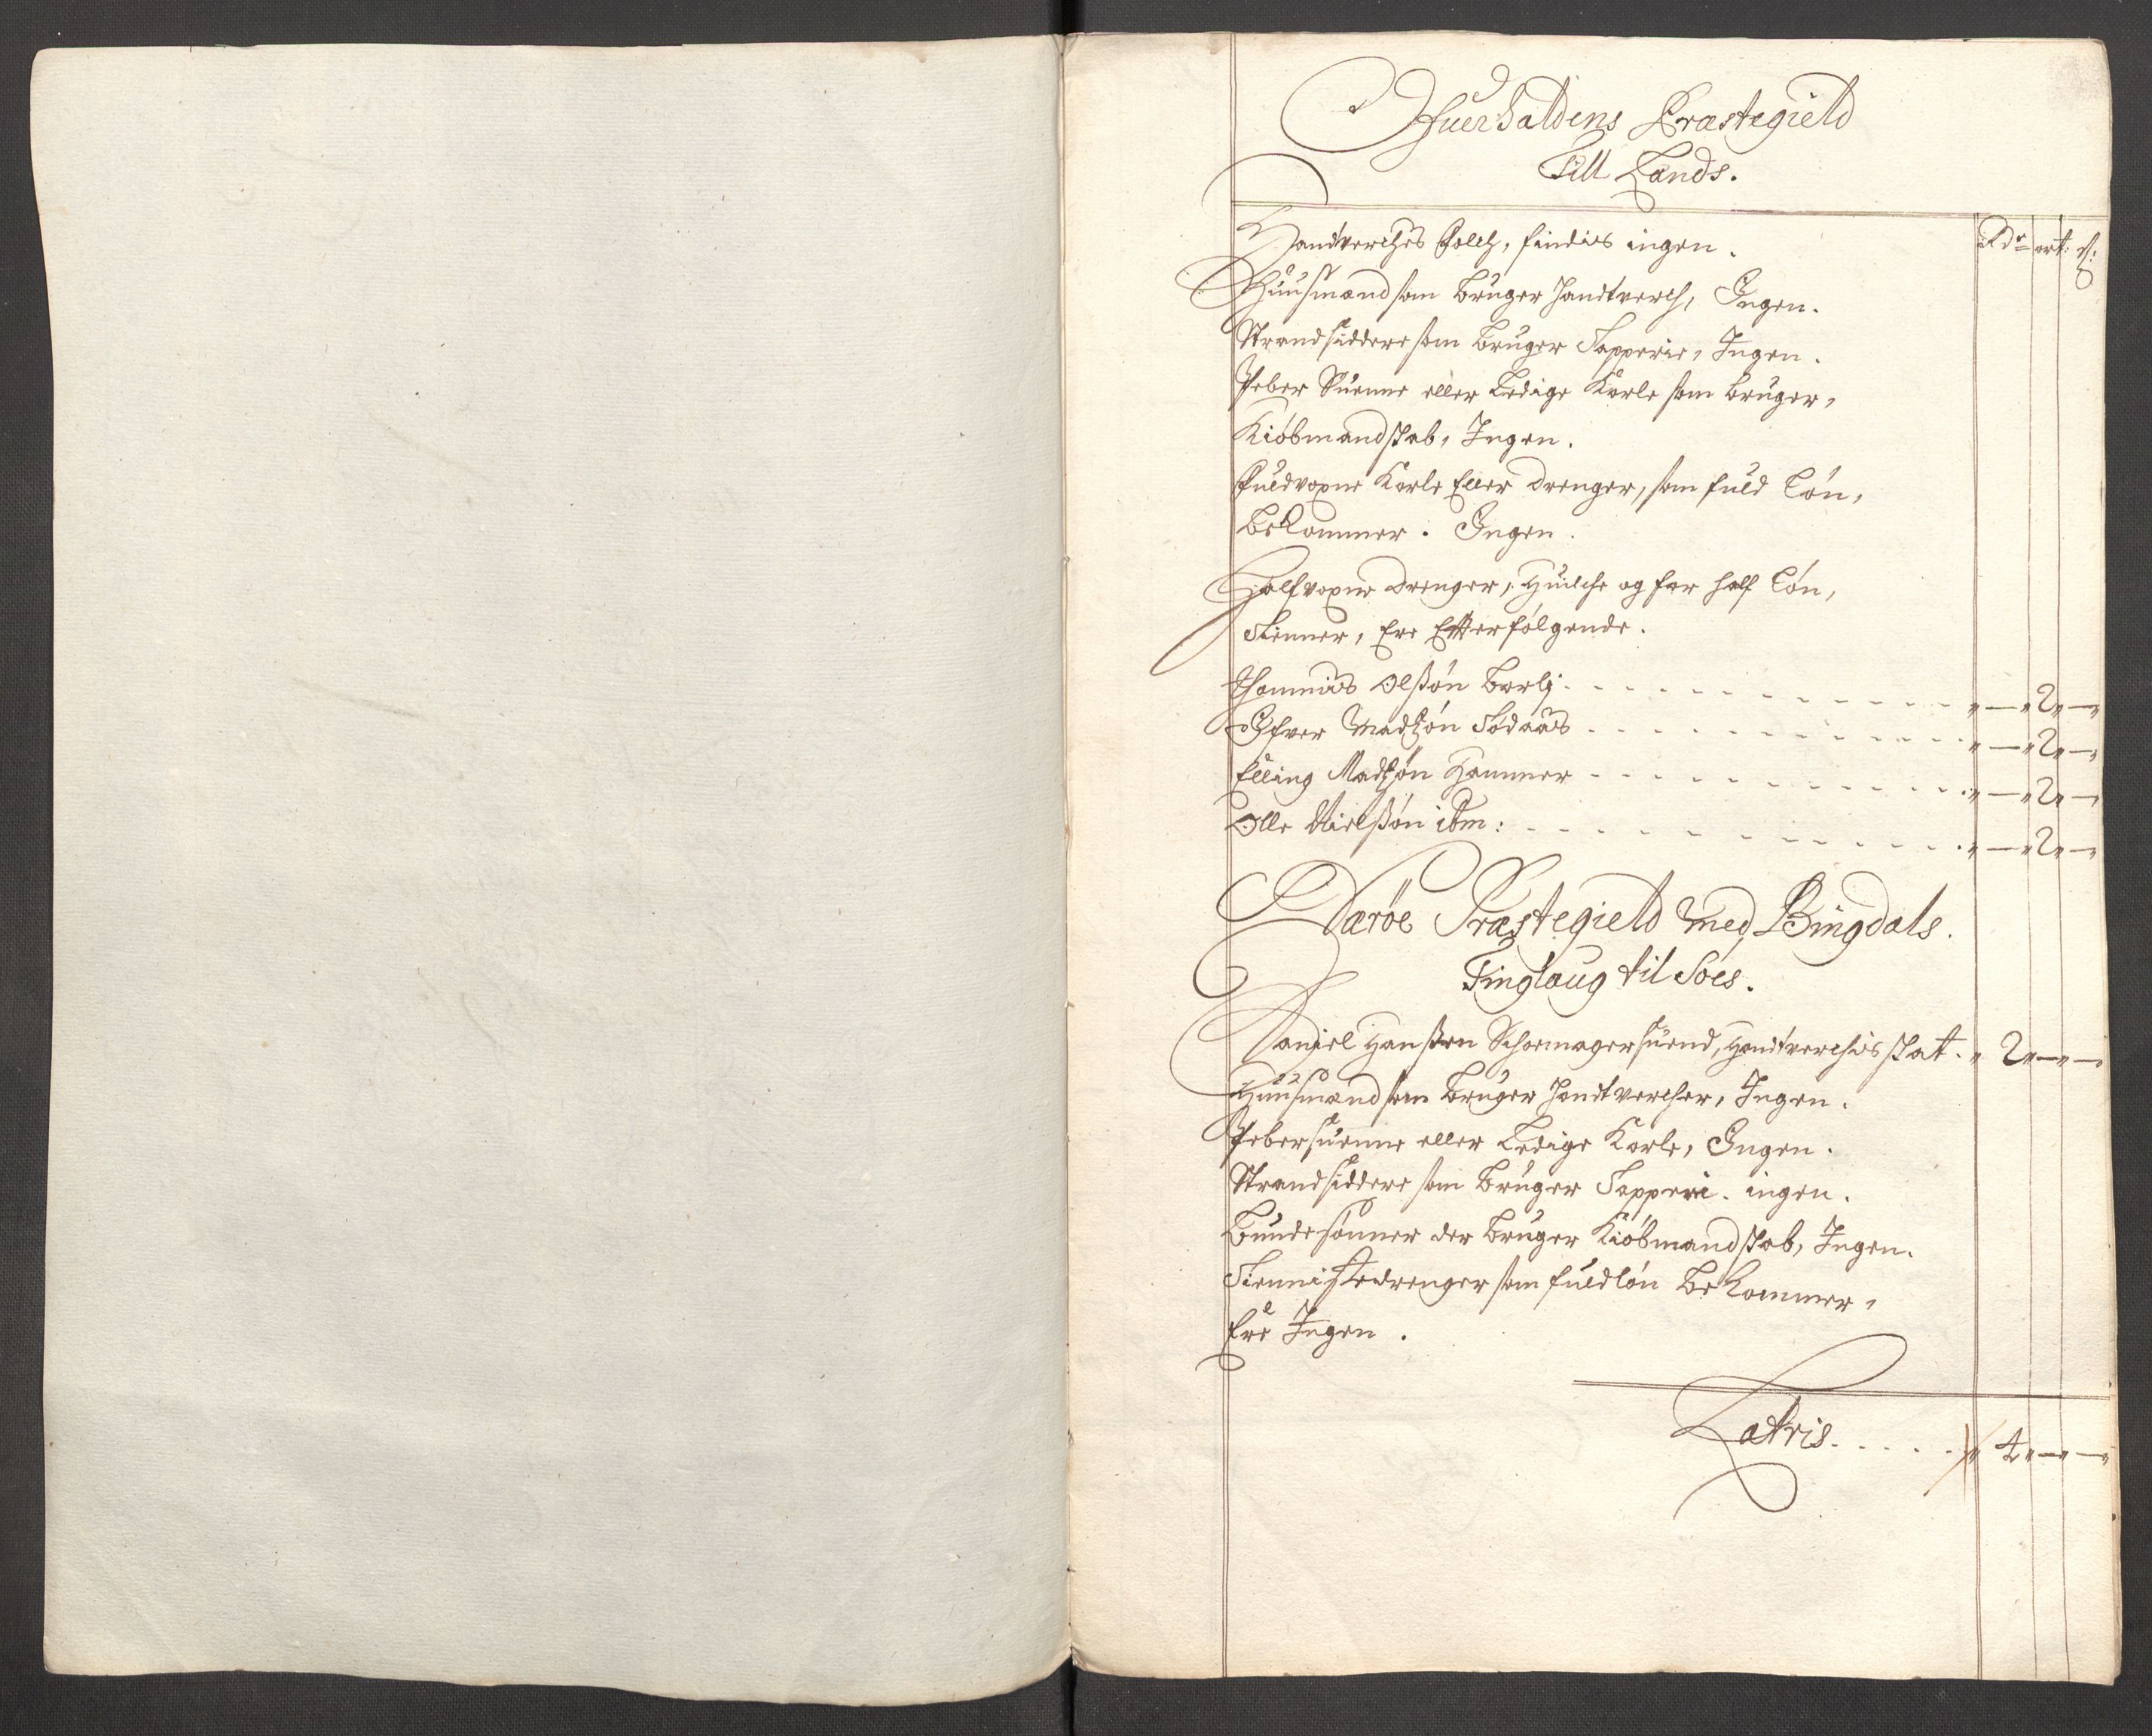 Ofuerhaldens Præstegield
Till Lands.
Rdr ort: ſ:
Handverchs Folch, findis ingen.
Huusmænd som bruger handtverch, Ingen.
Strandsiddere som bruger Sapperie, Ingen.
Peber Suenne eller Ledige Karle som bruger,
Kiøbmandskab, Ingen.
Fuldvoxne Karle eller drenger, som fuld løn,
bekommer. Ingen.
Halfvoxne drenger, huilche og for half løn,
tienner, ere Efterfølgende.
Thommis Olsøn Barlj - - - „ — „ 2 „ —
Ifver Madtzøn Sødaas - - - „ — „ 2 „ —
Elling Madtzøn Hammer - - - „ — „ 2 „ —
Olle Nielsøn ibm: - - - „ — „ 2 „ —
Nærøe Præstegield med Bingdals.
Tinglaug til Søes.
Daniel Hanssen Schomagersuend, Handtverchis skat. „ 2 „ — „ —
Huusmænd som bruger handtvercher, Ingen.
Pebersuenne eller Ledige Karle, Ingen.
Strandsiddere som bruger Sapperi. ingen.
Bundesønner der bruger Kiøbmandskab, Ingen.
Tiennistedrenger som fuldløn bekommer,
Ere Ingen.
Latris. . . . . „ 4 „ — „ —